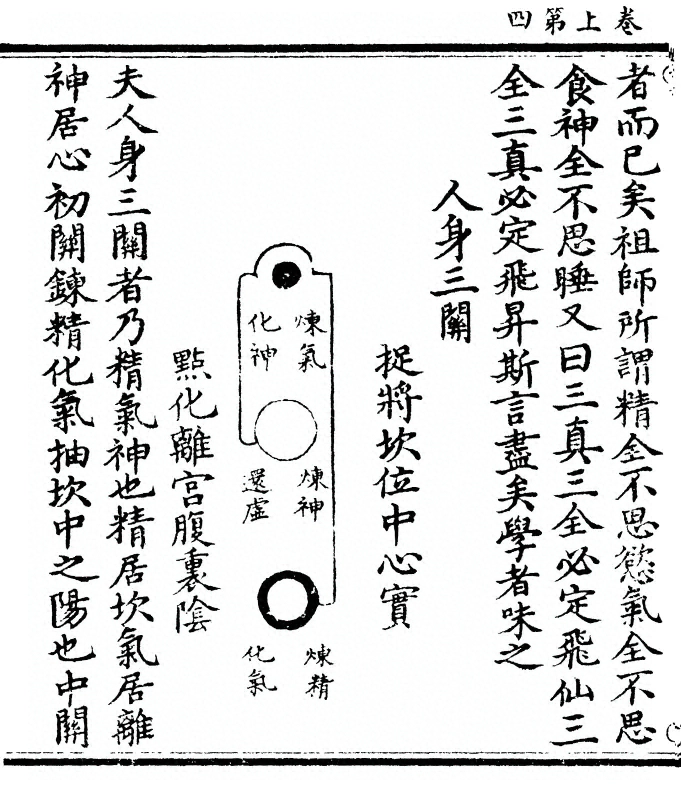 四第上卷
者而已矣祖師所謂精全不思慾氣全不思
食神全不思睡又曰三真三全必定飛仙三
全三真必定飛昇斯言盡矣學者味之
人身三關
捉將坎位中心實
煉氣
化神
煉神
還虛
煉精
化氣
點化離宮腹裏陰
夫人身三關者乃精氣神也精居坎氣居離
神居心初關鍊精化氣抽坎中之陽也中關